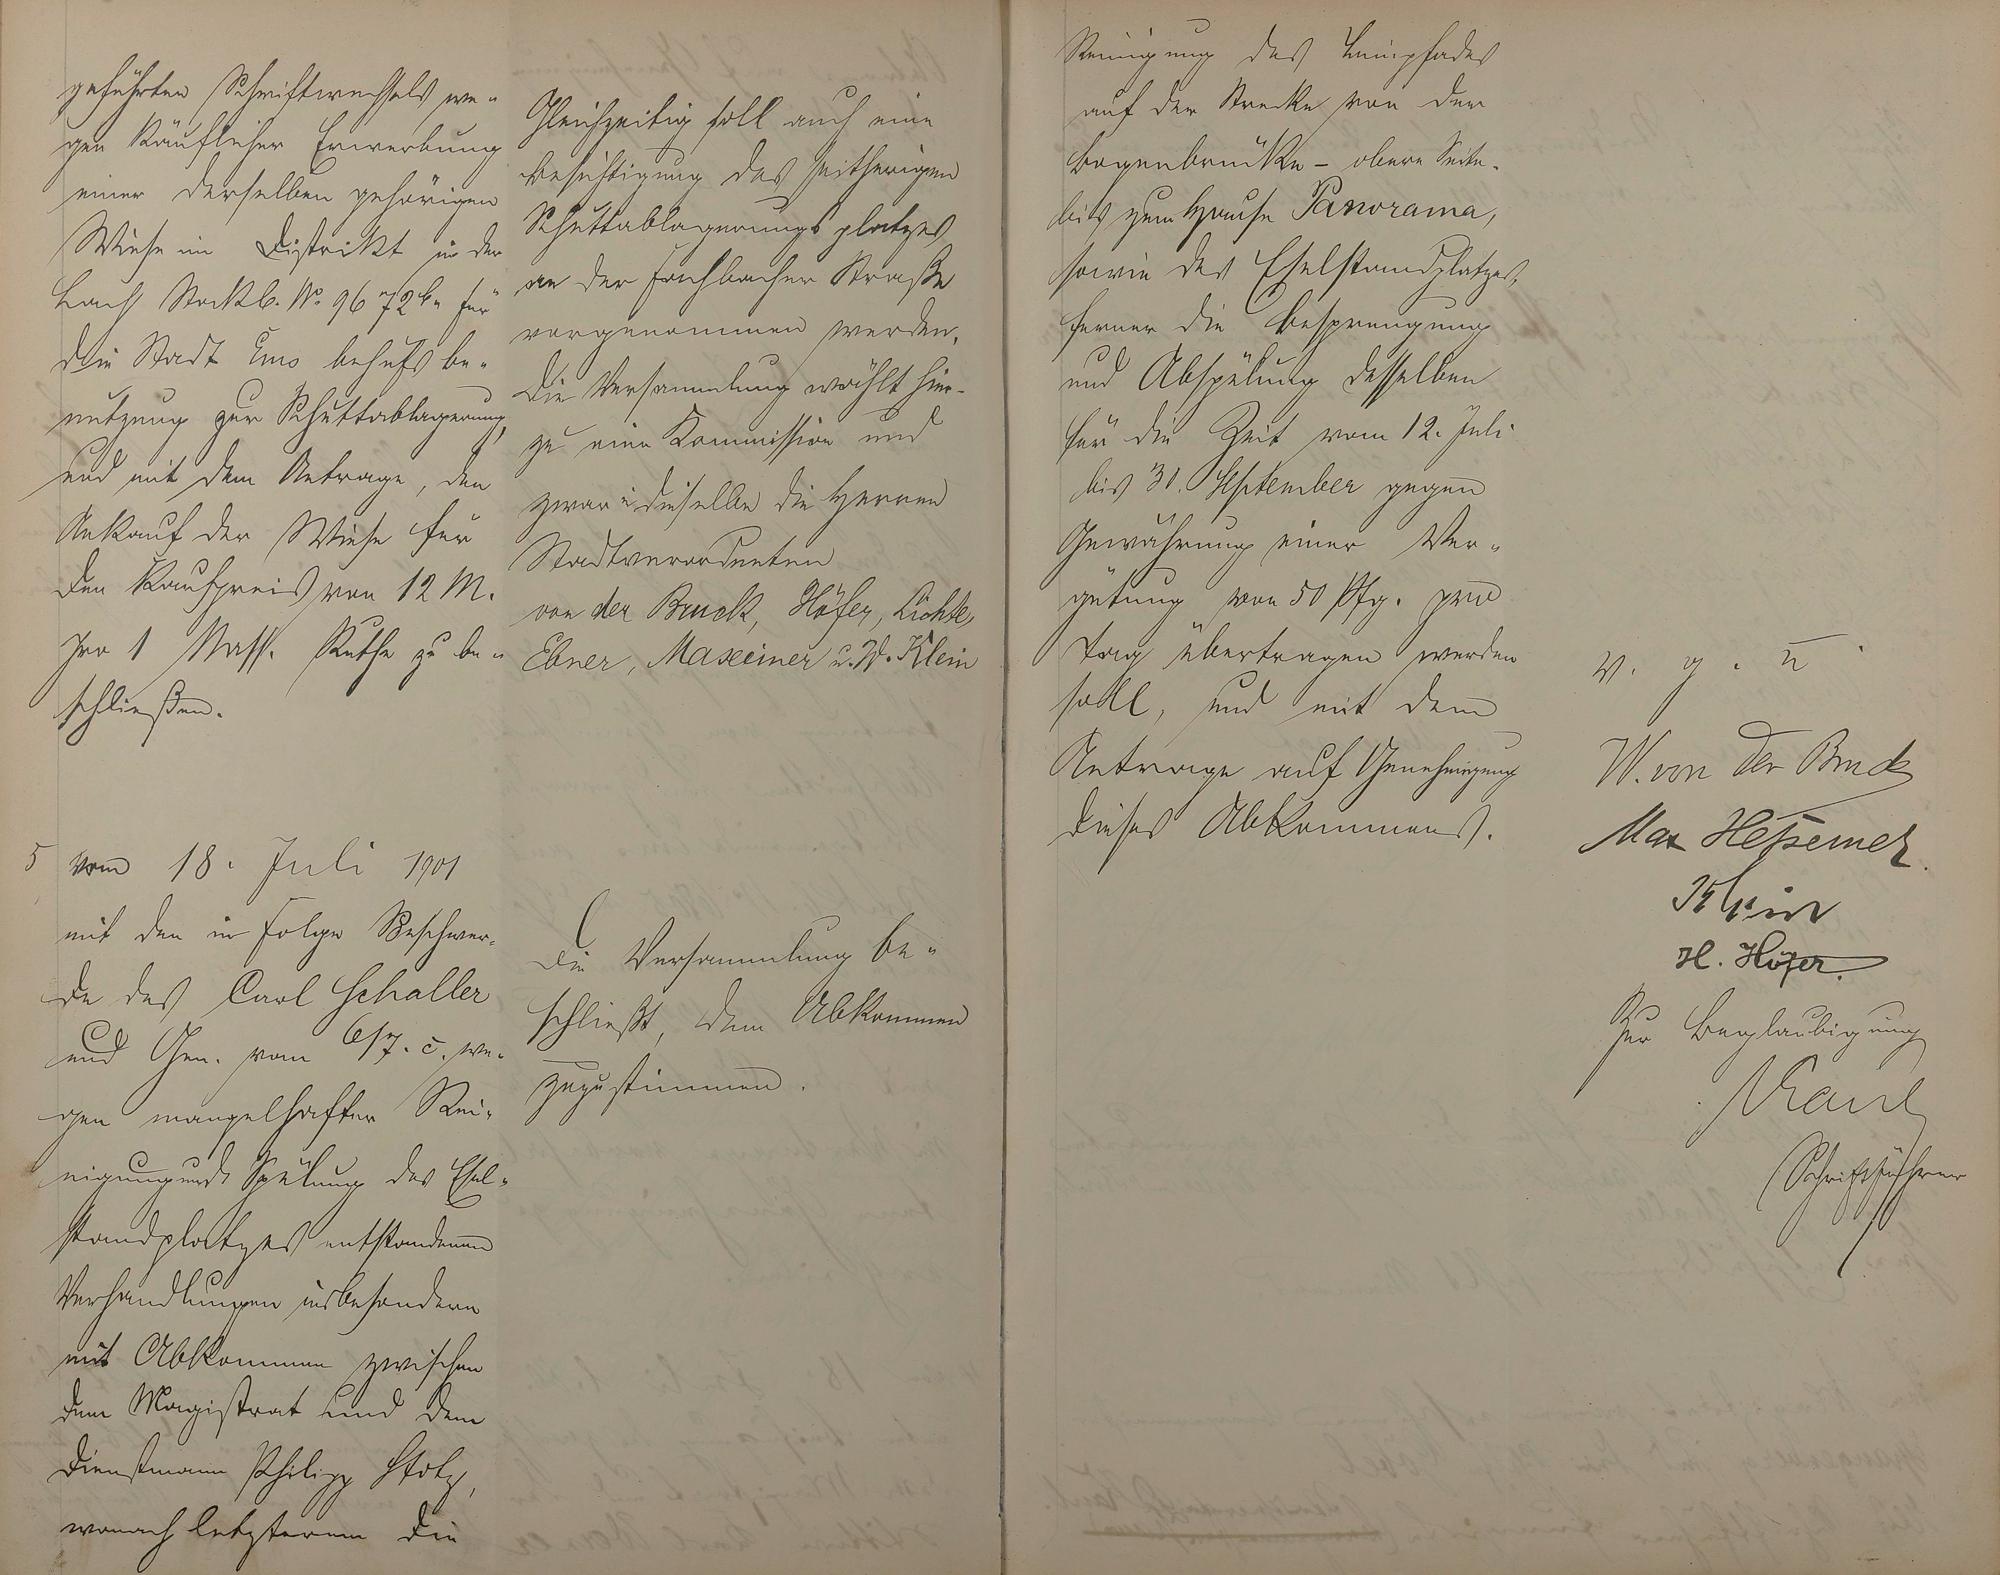 geführten Schriftwechsels we-
gen käuflicher Erwerbung
einer derselben gehörigen
Wiese im Distrikt in der
Bach Stockb. No 96 72 für
die Stadt Ems behufs Be-
nutzung zur Schuttablagerung,
und mit dem Antrage, den
Ankauf der Wiese für
den Kaufpreis von 12 M.
pro 1 Nass. Ruthe zu be-
schließen.
5 vom 18. Juli 1901
mit den in Folge Beschwer-
de des Carl Schaller
und Gen. vom 6/7. c. we-
gen mangelhafter Rei-
nigung und Spülung des Esel-
standplatzes entstandenen
Verhandlungen insbesondere
mit Abkommen zwischen
dem Magistrat und dem
Dienstmann Philipp Stotz,
wonach letzterem die
Gleichzeitig soll auch eine
Besichtigung des seitherigen
Schuttablagerungsplatzes
an der Fachbacher Straße
vorgenommen werden.
Die Versammlung wählt hier-
zu eine Kommission und
zwar in dieselbe die Herren
Stadtverordneten
von der Bruck, Höfer, Lichte,
Ebner, u. W. Klein
Die Versammlung be-
schließt, dem Abkommen
zuzustimmen.
Reinigung des Leinpfades
auf der Strecke von der
Bogenbrücke - obere Seite -
bis zum Hause Panorama,
sowie des Eselstandplatzes,
ferner die Besprengung
und Abspülung desselben
für die Zeit vom 12. Juli
bis 30. September gegen
Gewährung einer Ver-
gütung von 50 Pfg. pro
Tag übertragen werden
soll, und mit dem
Antrage auf Genehmigung
dieses Abkommens.
v. g. u.
W. von der Bruck
Max
Klein
H. Höfer.
Zur Beglaubigung
Schriftführer